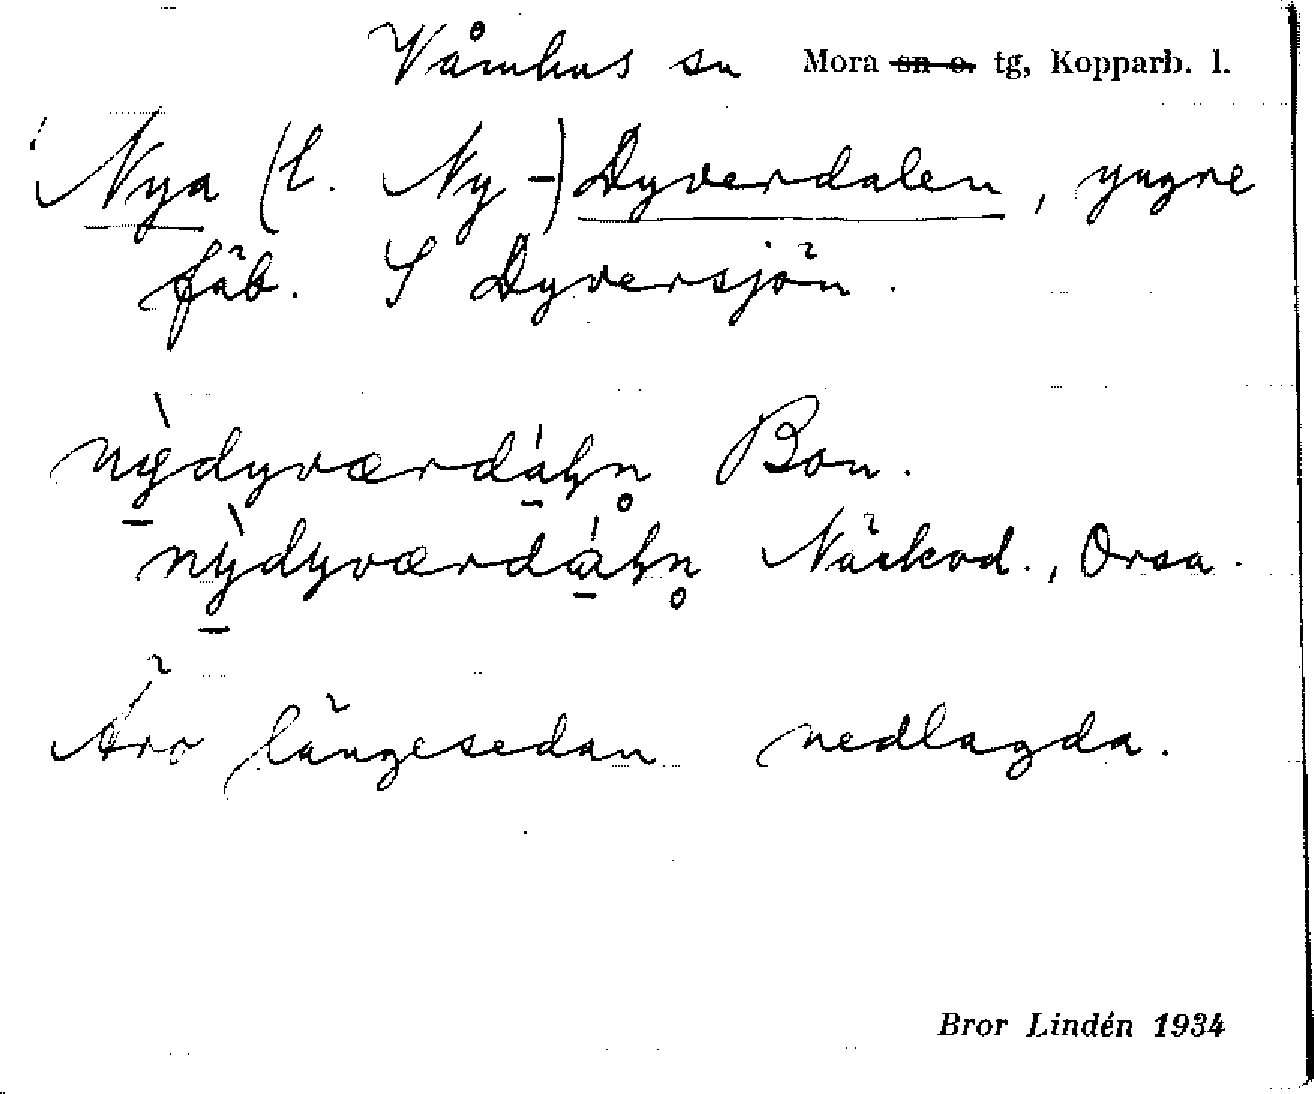 Våmhus sn Mora ~~sn o.~~ tg, Kopparb. l.
Nya (l. Ny-) Dyverdalen, yngre
fäb. S Dyversjön.
nỳdyværdáɫn̥ Bon.
nỳdyværdáɫn̥ Näckvd., Orsa.
Äro längesedan nedlagda.
Bror Lindén 1934